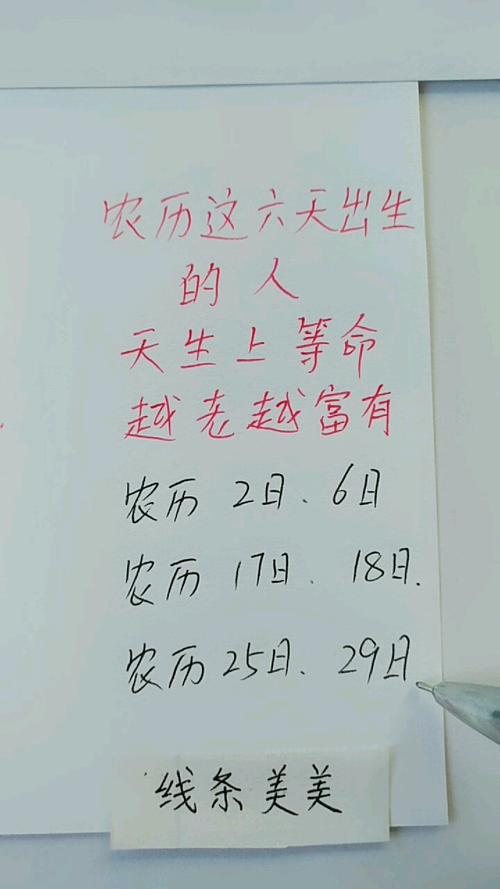 农历这六天出生
的人
天生上等命
越老越富有
农历 2日、6日
农历 17日、18日.
农历 25日、29日
线条美美